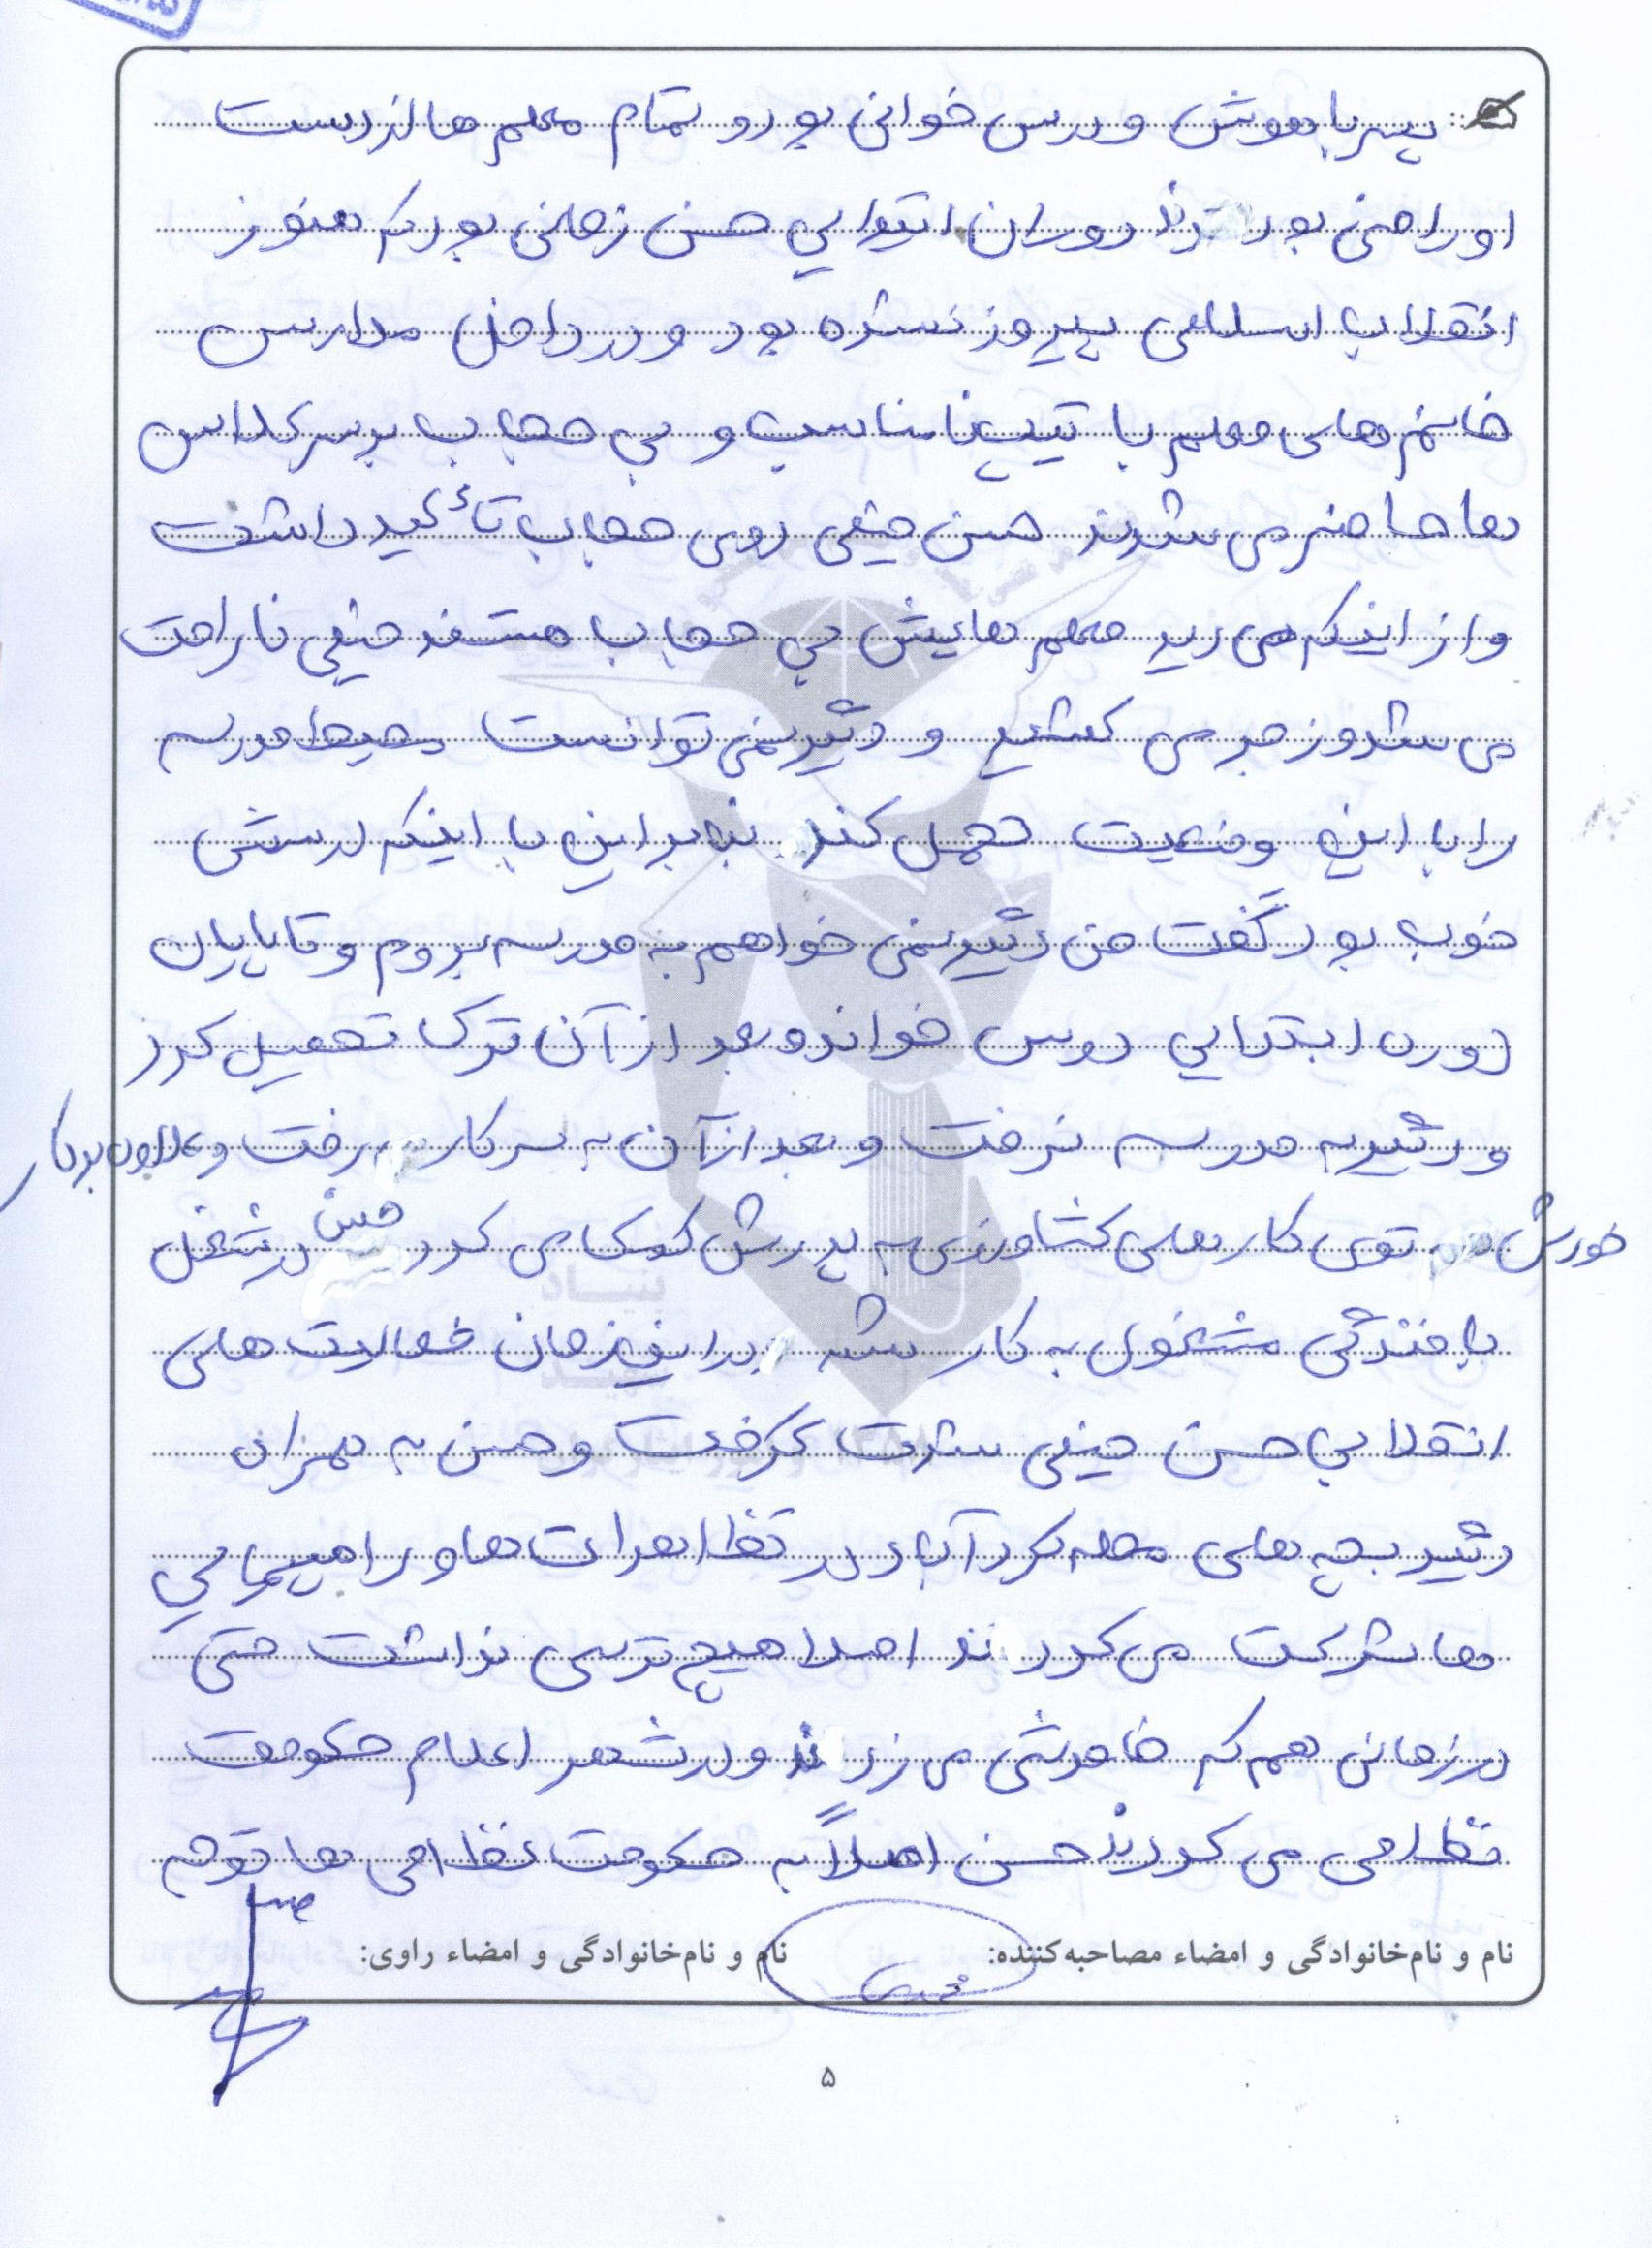 پسر باهوش و درس خوانی بود و تمام معلم ها از دست
او راضی بودند دوران ابتدایی حسن زمانی بود که هنوز
انقلاب اسلامی پیروز نشده بود و در داخل مدارس
خانم های معلم با تیپ نامناسب و بی حجاب بر سر کلاس
ها حاضر می شدند حسن خیلی روی حجاب تأکید داشت
و از اینکه می دید معلم هایش بی حجاب هستند خیلی ناراحت
می شد و زجر می کشید و دیگر نمی توانست محیط مدرسه
را با این وضعیت تحمل کند بنابراین با اینکه درسش
خوب بود گفت من دیگر نمی خواهم به مدرسه بروم و تا پایان
دوره ابتدایی درس خواند و بعد از آن ترک تحصیل کرد
و دیگر به مدرسه نرفت و بعد از آن به سر کار رفت و علاوه بر کار
خودش توی کارهای کشاورزی به پدرش کمک می کرد حسن در شغل
بافندگی مشغول به کار شد در این زمان فعالیت های
انقلابی حسن خیلی شدت گرفت و حسن به همراه
دیگر بچه های محله کرد آباد در تظاهرات ها و راهپیمایی
ها شرکت می کردند اصلا هیچ ترسی نداشت حتی
در زمانی هم که خاموشی می زدند و در شهر اعلام حکومت
نظامی می کردند حسن اصلاً به حکومت نظامی ها توجه
نام و نام‌خانوادگی و امضاء مصاحبه‌کننده: نام و نام‌خانوادگی و امضاء راوی:
۵